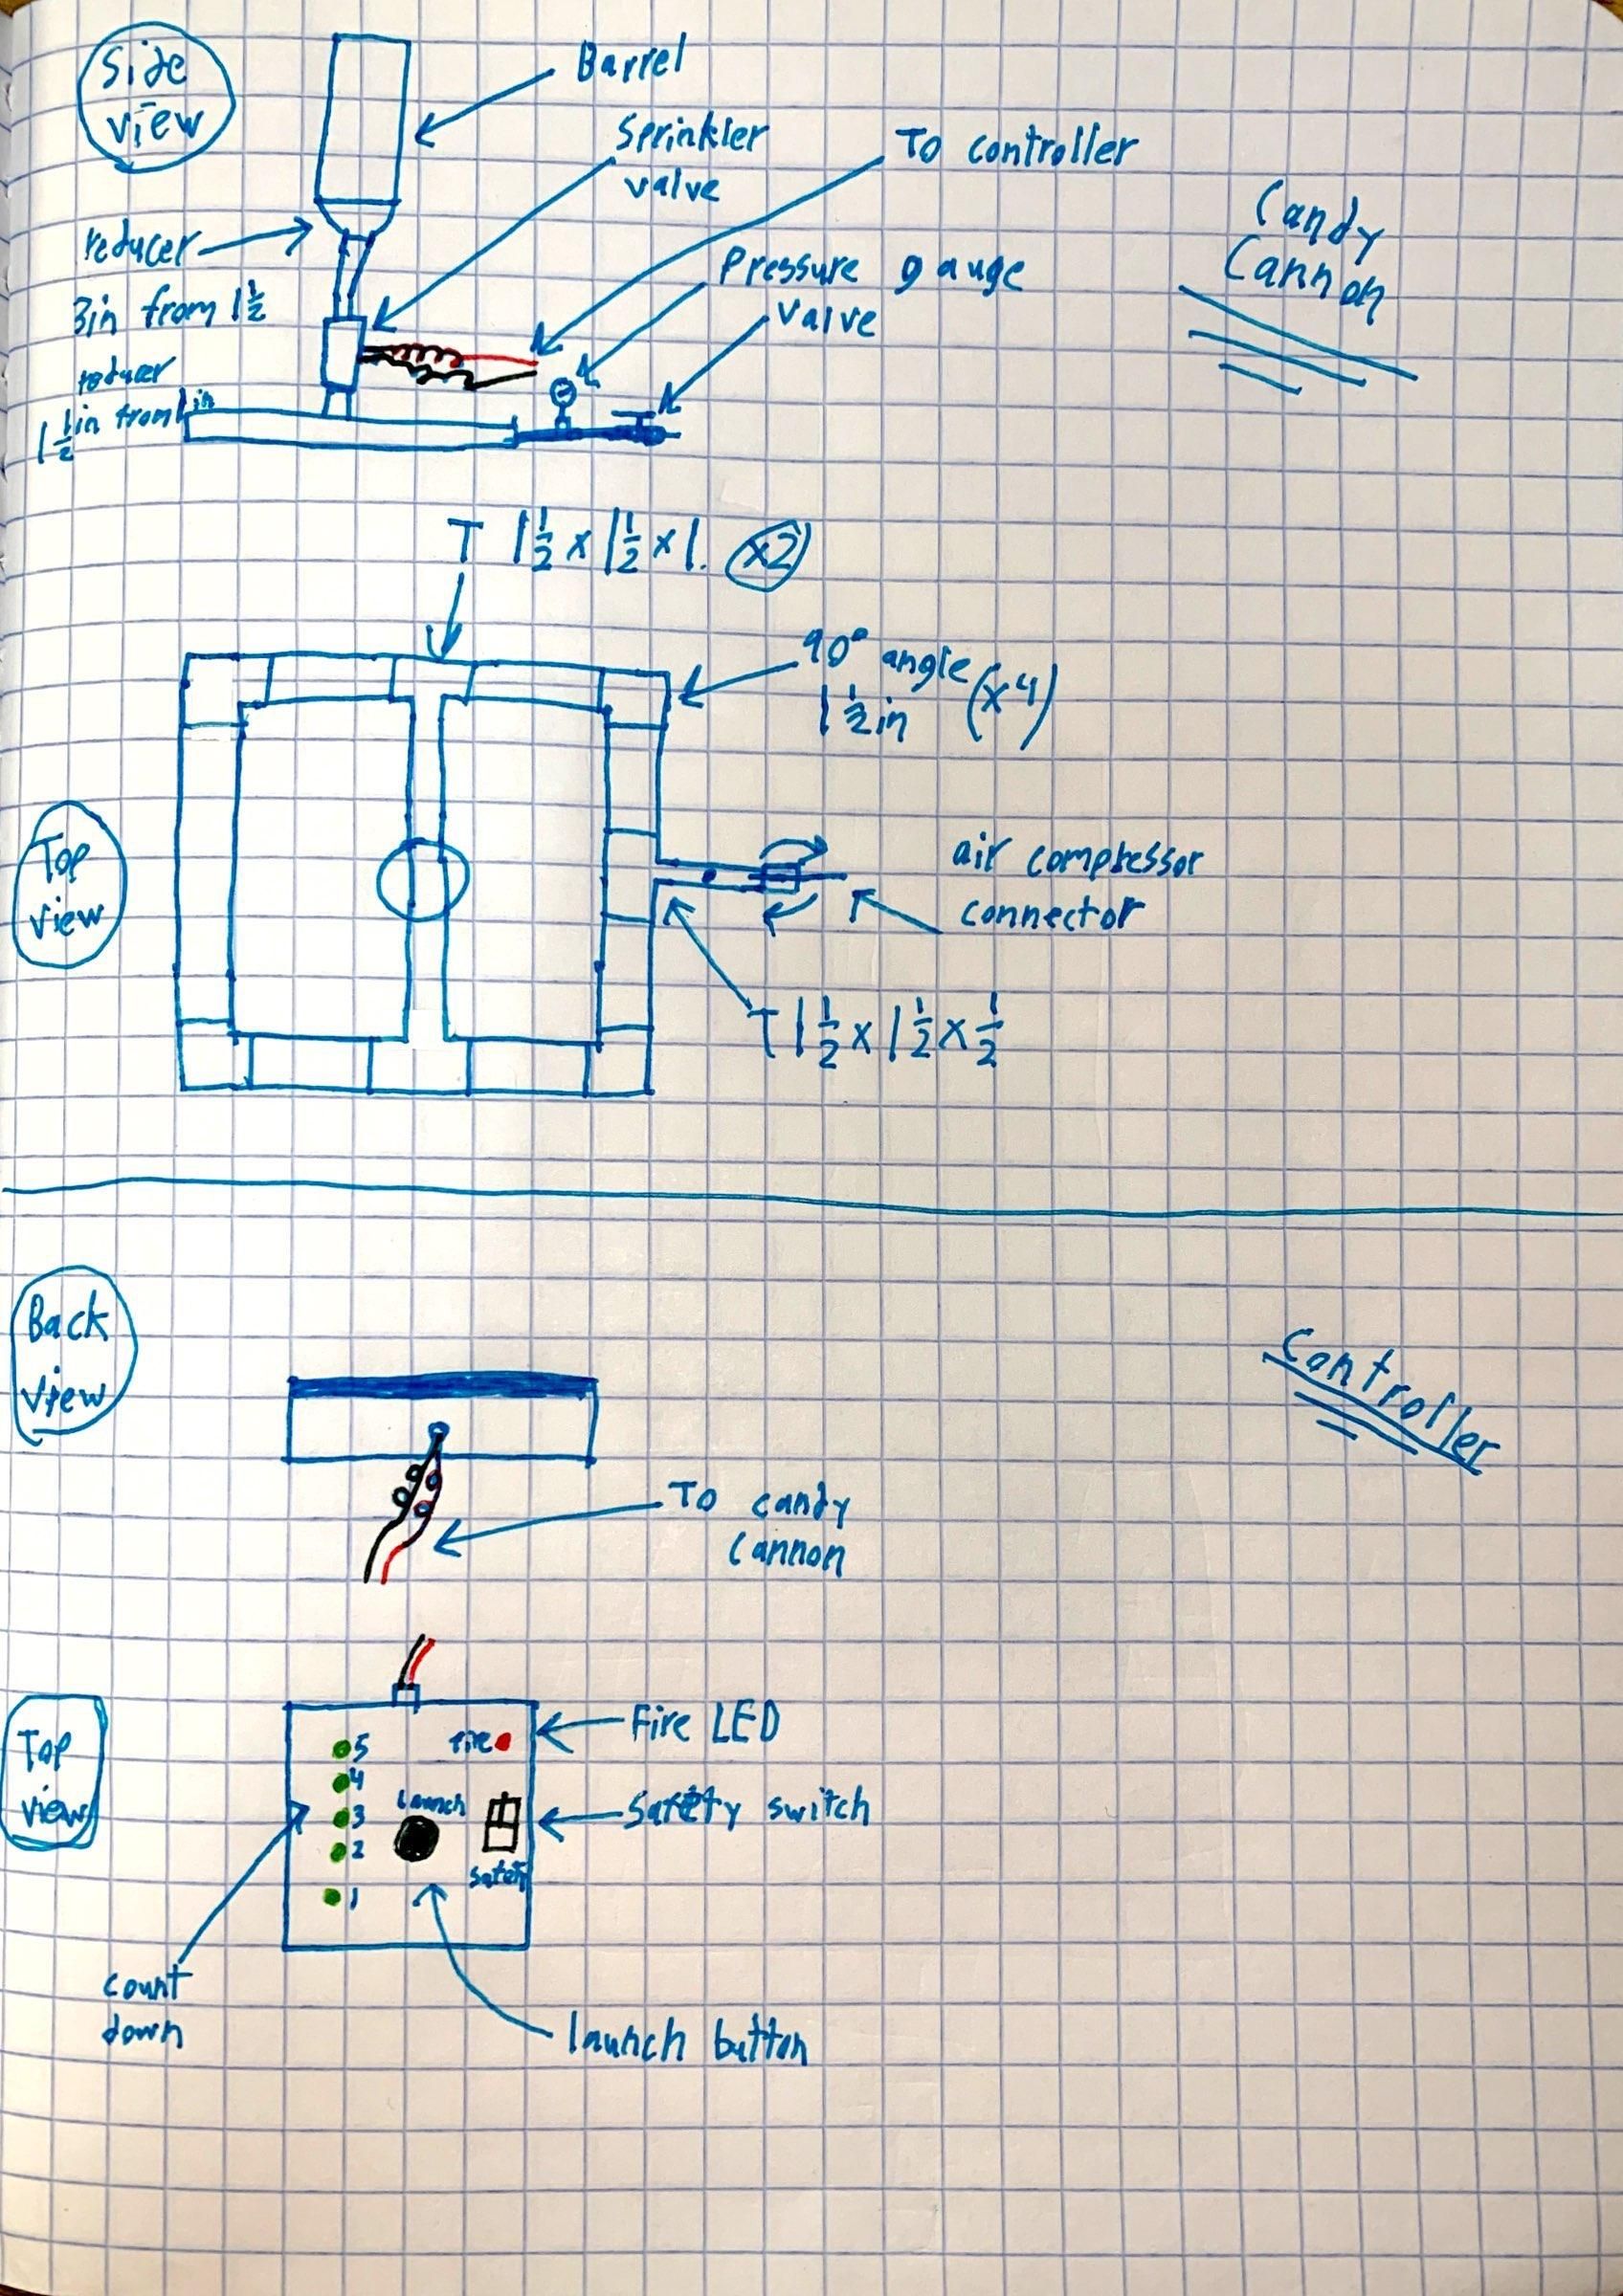 Side
view
Barrel
Sprinkler
valve
To controller
Candy
Cannon
reducer
3in from 1 1/2
Pressure gauge
valve
reducer
1 1/2 in from 1 in
T 1 1/2 x 1 1/2 x 1. x2
90° angle
1 1/2 in (x4)
Top
view
air compressor
connector
T 1 1/2 x 1 1/2 x 1/2
Back
view
Controller
To candy
cannon
Top
view
5
fire
Fire LED
4
Launch
3
Safety switch
2
safety
1
count
down
launch button